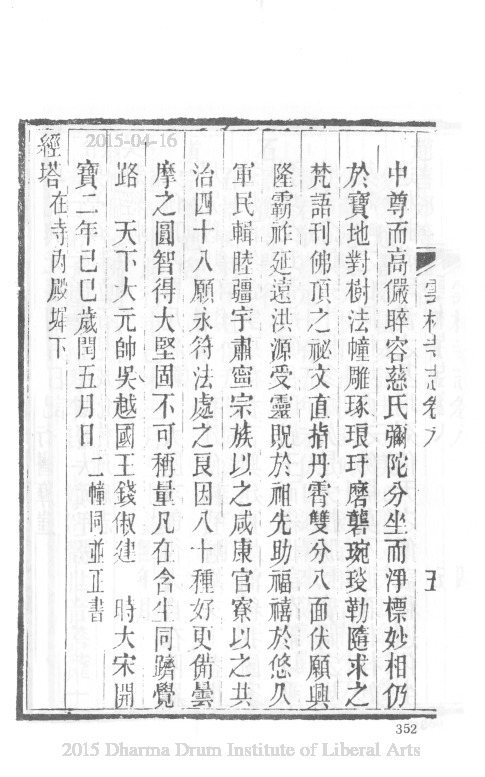 2015-04-16
雲林寺志卷九
五
中尊而高儼睟容慈氏彌陀分坐而淨標妙相仍
於寶地對樹法幢雕琢琅玕磨礱琬琰勒隨求之
梵語刊佛頂之祕文直指丹霄雙分八面伏願興
隆霸祚延遠洪源受靈貺於祖先助福禧於悠久
軍民輯睦疆宇肅寧宗族以之咸康官寮以之共
治四十八願永符法處之良因八十種好更備曇
摩之圓智得大堅固不可稱量凡在含生同躋覺
路 天下大元帥吳越國王錢俶建 時大宋開
寶二年己巳歲閏五月日 二幢同並正書
經塔在寺內殿墀下
352
2015 Dharma Drum Institute of Liberal Arts